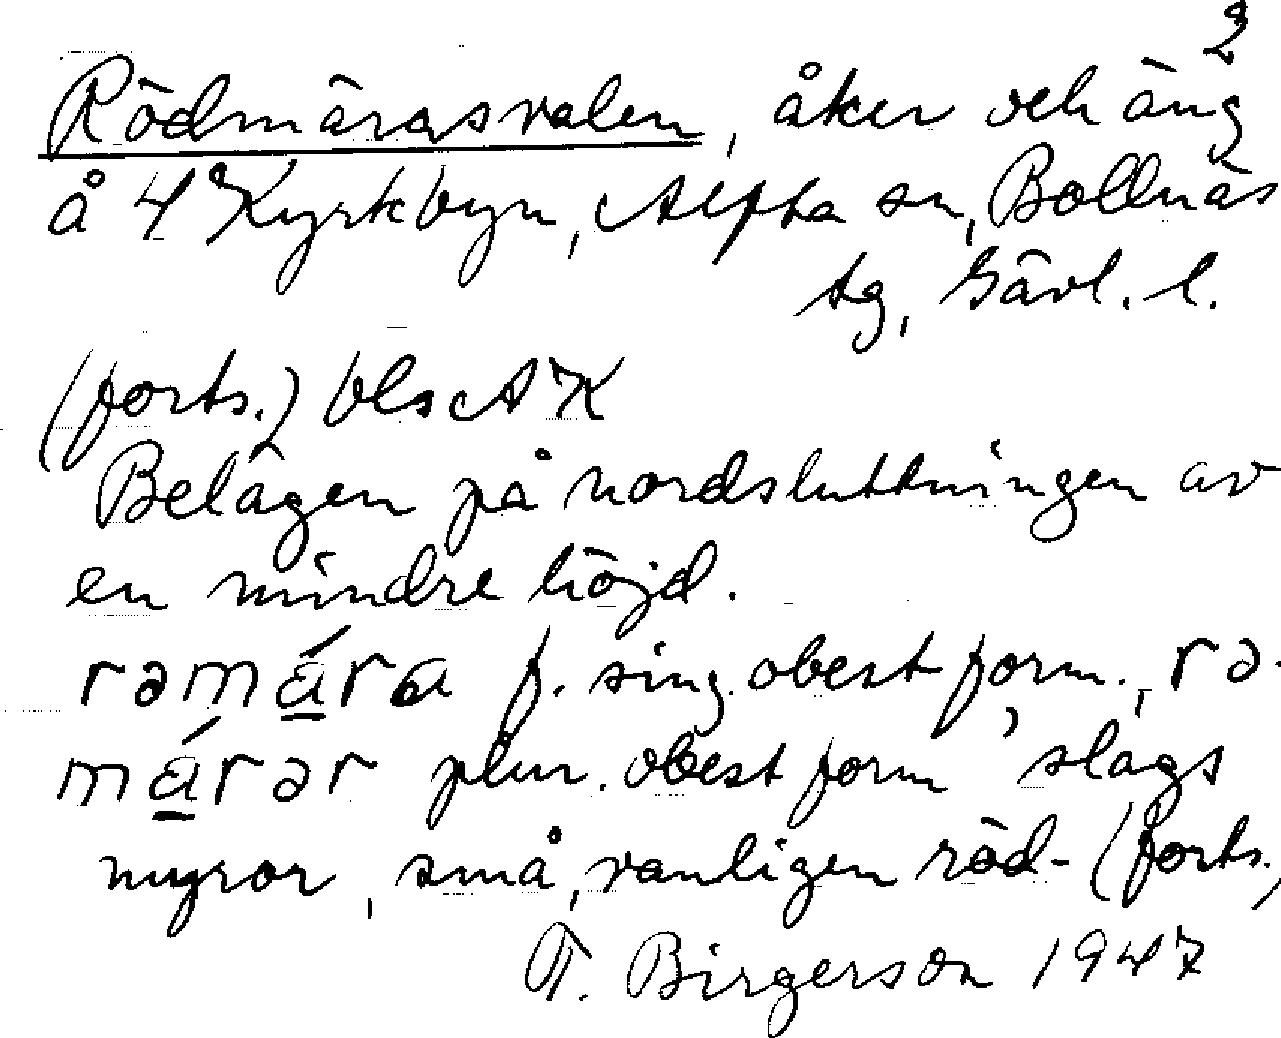 2
Rödmärasvalen, åker och äng
å 4 Kyrkbyn, Alfta sn, Bollnäs
tg, Gävl. l.
(forts.) bls AK
Belägen på nordsluttningen av
en mindre höjd.
rəmára f. sing. obest form., rə-
márər plur. obest form ’slags
myror, små, vanligen röd- (forts.)
T. Birgerson 1947